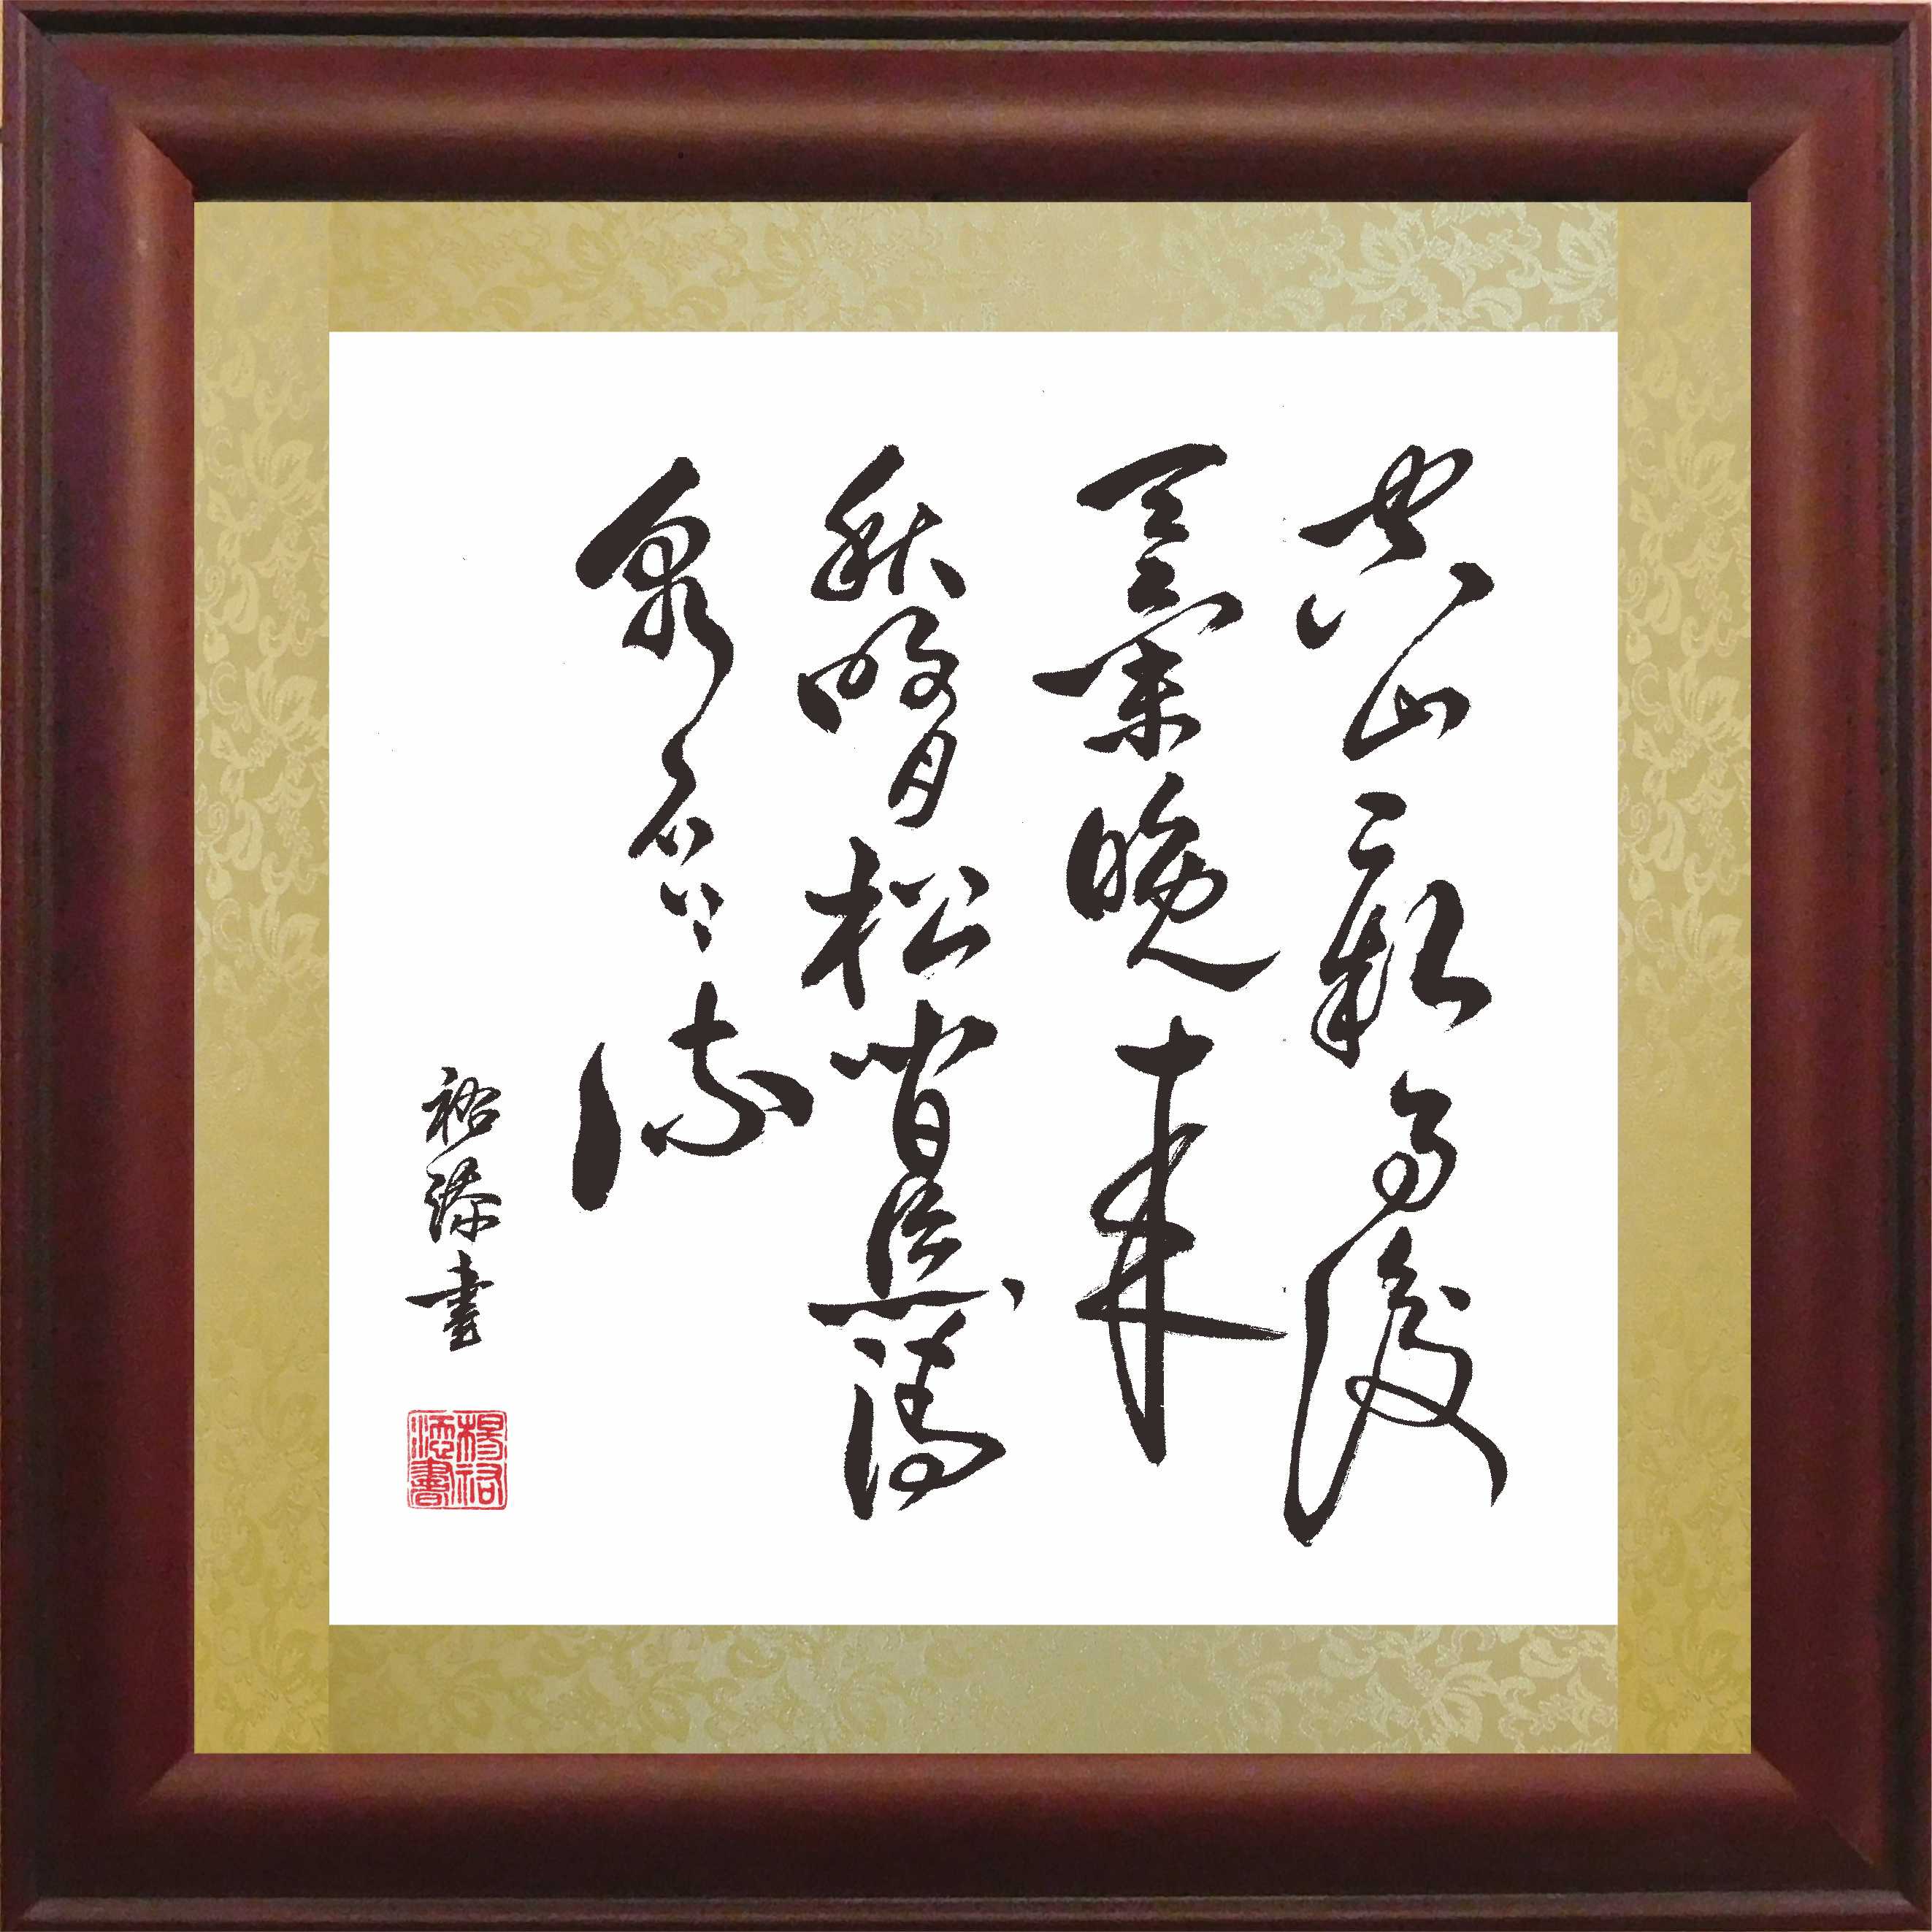 空山新雨後
天氣晚來
秋明月松間照清
泉石上流
裕添書
楊裕添書